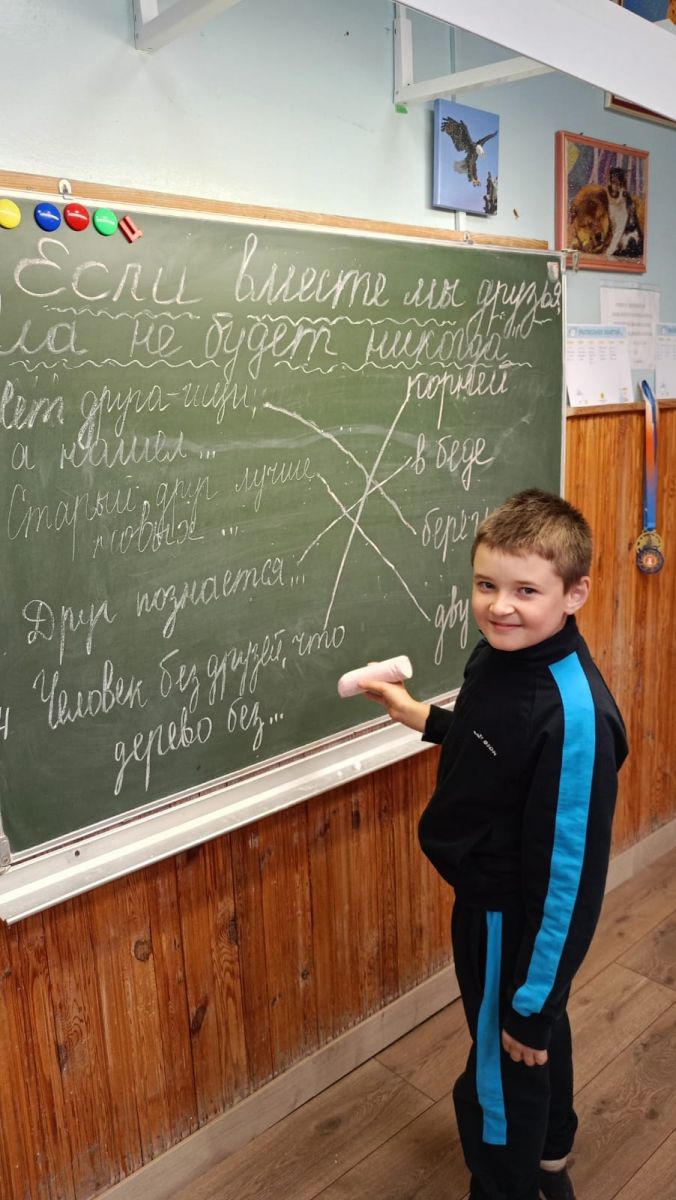 Если вместе мы друзья,
ла не будет никогда"
друга-ищи,
а нашел...
Старый друг лучше
новых ...
Друг познается...
Человек без друзей, что
дерево без...
корней
в беде
береги
дву